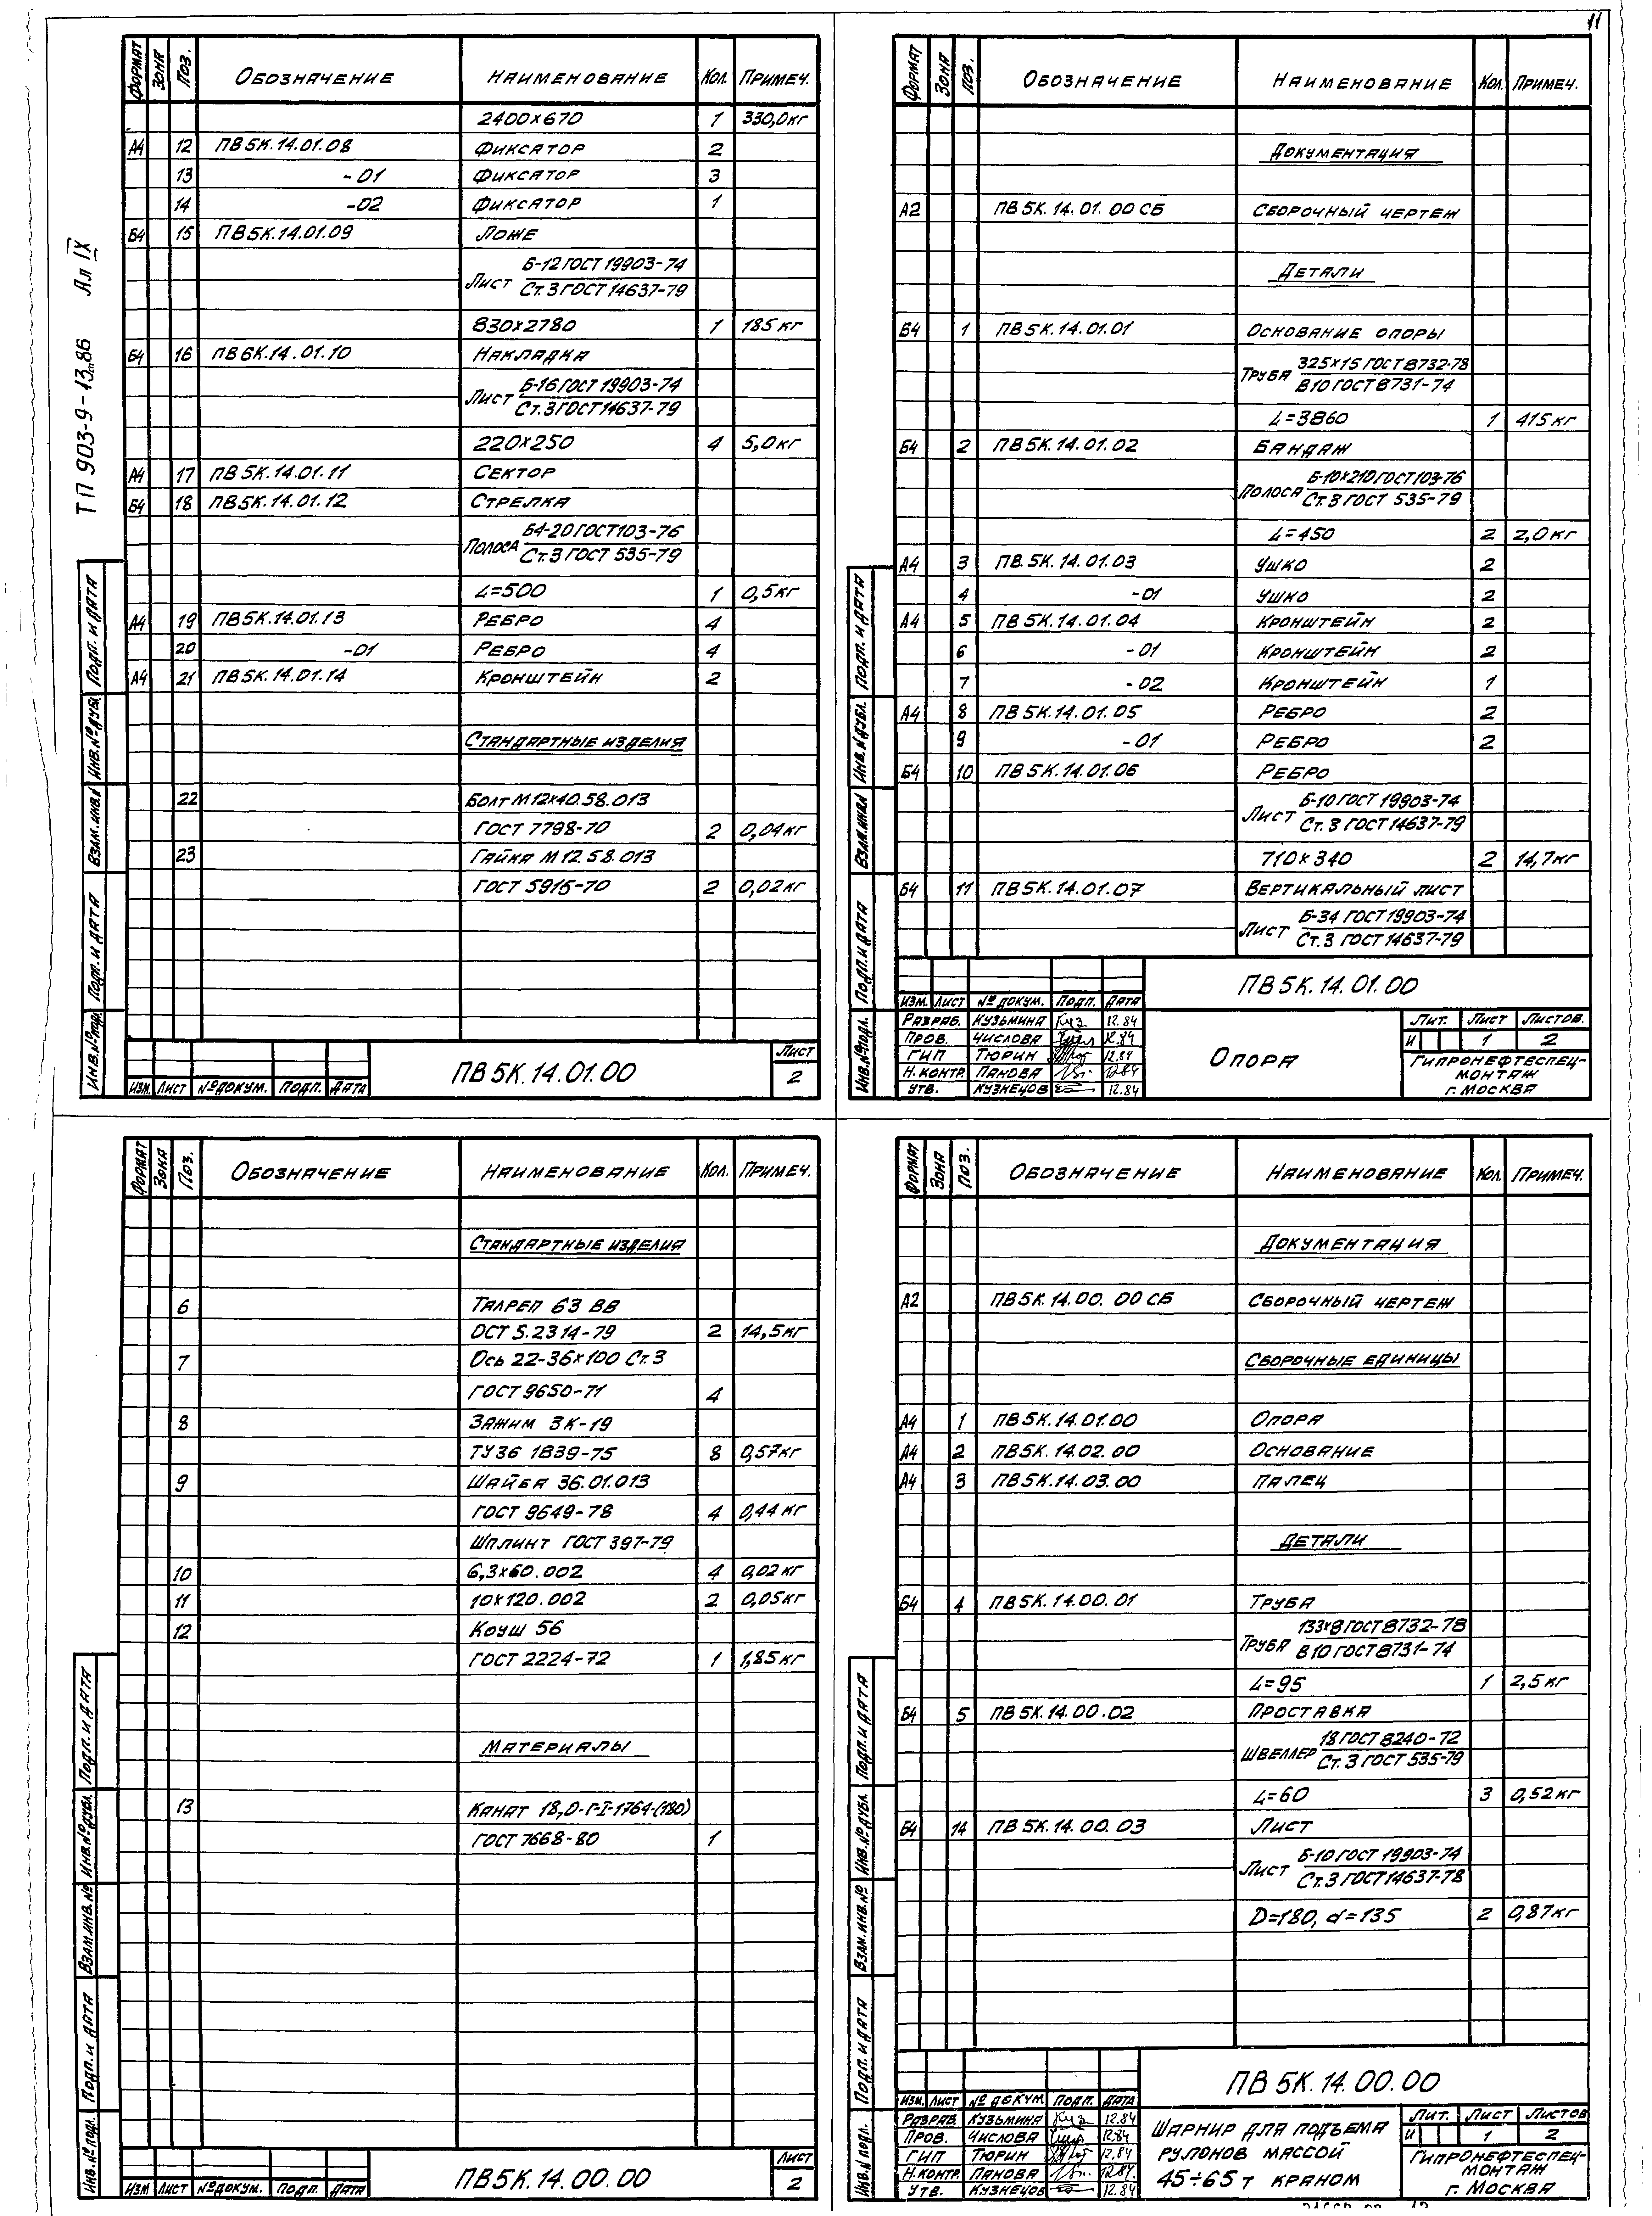 11
ТП 903-9-13.86 Ал IX
ФОРМАТ ЗОНА ПОЗ. ОБОЗНАЧЕНИЕ НАИМЕНОВАНИЕ КОЛ. ПРИМЕЧ.
2400×670 1 330,0кг
А4 12 ПВ5К.14.01.08 ФИКСАТОР 2
13 -01 ФИКСАТОР 3
14 -02 ФИКСАТОР 1
Б4 15 ПВ5К.14.01.09 ЛОЖЕ
Б-12 ГОСТ 19903-74
ЛИСТ
Ст.3 ГОСТ 14637-79
830×2780 1 185 кг
Б4 16 ПВ6К.14.01.10 НАКЛАДКА
Б-16 ГОСТ 19903-74
ЛИСТ
Ст.3 ГОСТ 14637-79
220×250 4 5,0кг
А4 17 ПВ5К.14.01.11 СЕКТОР
Б4 18 ПВ5К.14.01.12 СТРЕЛКА
Б4-20 ГОСТ 103-76
ПОЛОСА
Ст.3 ГОСТ 535-79
L=500 1 0,5кг
А4 19 ПВ5К.14.01.13 РЕБРО 4
20 -01 РЕБРО 4
А4 21 ПВ5К.14.01.14 КРОНШТЕЙН 2
СТАНДАРТНЫЕ ИЗДЕЛИЯ
22 БОЛТ М12×40.58.013
ГОСТ 7798-70 2 0,04кг
23 ГАЙКА М12.58.013
ГОСТ 5915-70 2 0,02кг
ИНВ.№ПОДЛ. ПОДП. И ДАТА ВЗАМ.ИНВ.№ ИНВ.№ДУБЛ. ПОДП. И ДАТА
ИЗМ. ЛИСТ №ДОКУМ. ПОДП. ДАТА
ПВ5К.14.01.00
ЛИСТ
2
ФОРМАТ ЗОНА ПОЗ. ОБОЗНАЧЕНИЕ НАИМЕНОВАНИЕ КОЛ. ПРИМЕЧ.
ДОКУМЕНТАЦИЯ
А2 ПВ5К.14.01.00СБ СБОРОЧНЫЙ ЧЕРТЕЖ
ДЕТАЛИ
Б4 1 ПВ5К.14.01.01 ОСНОВАНИЕ ОПОРЫ
325×15 ГОСТ 8732-78
ТРУБА
В10 ГОСТ 8731-74
L=3860 1 415кг
Б4 2 ПВ5К.14.01.02 БАНДАЖ
Б-10×210 ГОСТ 103-76
ПОЛОСА
Ст.3 ГОСТ 535-79
L=450 2 2,0кг
А4 3 ПВ.5К.14.01.03 УШКО 2
4 -01 УШКО 2
А4 5 ПВ5К.14.01.04 КРОНШТЕЙН 2
6 -01 КРОНШТЕЙН 2
7 -02 КРОНШТЕЙН 1
А4 8 ПВ5К.14.01.05 РЕБРО 2
9 -01 РЕБРО 2
Б4 10 ПВ5К.14.01.06 РЕБРО
Б-10 ГОСТ 19903-74
ЛИСТ
Ст.3 ГОСТ 14637-79
710×340 2 14,7кг
Б4 11 ПВ5К.14.01.07 ВЕРТИКАЛЬНЫЙ ЛИСТ
Б-34 ГОСТ 19903-74
ЛИСТ
Ст.3 ГОСТ 14637-79
ИНВ.№ПОДЛ. ПОДП.И ДАТА ВЗАМ.ИНВ.№ ИНВ.№ДУБЛ. ПОДП. И ДАТА
ПВ5К.14.01.00
ИЗМ. ЛИСТ №ДОКУМ. ПОДП. ДАТА
РАЗРАБ. КУЗЬМИНА Куз 12.84
ПРОВ. ЧИСЛОВА 12.84
ГИП ТЮРИН 12.84
Н.КОНТР. ПАНОВА 12.84
УТВ. КУЗНЕЦОВ 12.84
ОПОРА
ЛИТ. ЛИСТ ЛИСТОВ.
И 1 2
ГИПРОНЕФТЕСПЕЦ-
МОНТАЖ
г. МОСКВА
ФОРМАТ ЗОНА ПОЗ. ОБОЗНАЧЕНИЕ НАИМЕНОВАНИЕ КОЛ. ПРИМЕЧ.
СТАНДАРТНЫЕ ИЗДЕЛИЯ
6 ТАЛРЕП 63 ВВ
ОСТ 5.2314-79 2 14,5кг
7 ОСЬ 22-36×100 Ст.3
ГОСТ 9650-71 4
8 ЗАЖИМ ЗК-19
ТУ36 1839-75 8 0,57кг
9 ШАЙБА 36.01.013
ГОСТ 9649-78 4 0,44кг
ШПЛИНТ ГОСТ 397-79
10 6,3×60.002 4 0,02кг
11 10×120.002 2 0,05кг
12 КОУШ 56
ГОСТ 2224-72 1 1,85кг
МАТЕРИАЛЫ
13 КАНАТ 18,0-Г-I-1764-(180)
ГОСТ 7668-80 1
ИНВ.№ПОДЛ. ПОДП. И ДАТА ВЗАМ.ИНВ.№ ИНВ.№ДУБЛ. ПОДП. И ДАТА
ИЗМ ЛИСТ №ДОКУМ. ПОДП. ДАТА
ПВ5К.14.00.00
ЛИСТ
2
ФОРМАТ ЗОНА ПОЗ. ОБОЗНАЧЕНИЕ НАИМЕНОВАНИЕ КОЛ. ПРИМЕЧ.
ДОКУМЕНТАЦИЯ
А2 ПВ5К.14.00.00СБ СБОРОЧНЫЙ ЧЕРТЕЖ
СБОРОЧНЫЕ ЕДИНИЦЫ
А4 1 ПВ5К.14.01.00 ОПОРА
А4 2 ПВ5К.14.02.00 ОСНОВАНИЕ
А4 3 ПВ5К.14.03.00 ПАЛЕЦ
ДЕТАЛИ
Б4 4 ПВ5К.14.00.01 ТРУБА
133×8 ГОСТ 8732-78
ТРУБА
В10 ГОСТ 8731-74
L=95 1 2,5кг
Б4 5 ПВ5К.14.00.02 ПРОСТАВКА
18 ГОСТ 8240-72
ШВЕЛЛЕР
Ст.3 ГОСТ 535-79
L=60 3 0,52кг
Б4 14 ПВ5К.14.00.03 ЛИСТ
Б-10 ГОСТ 19903-74
ЛИСТ
Ст.3 ГОСТ 14637-78
D=180, d=135 2 0,87кг
ИНВ.№ПОДЛ. ПОДП.И ДАТА ВЗАМ.ИНВ.№ ИНВ.№ДУБЛ. ПОДП. И ДАТА
ПВ5К.14.00.00
ИЗМ. ЛИСТ № ДОКУМ. ПОДП. ДАТА
РАЗРАБ. КУЗЬМИНА Куз 12.84
ПРОВ. ЧИСЛОВА 12.84
ГИП ТЮРИН 12.84
Н.КОНТР. ПАНОВА 12.84.
УТВ. КУЗНЕЦОВ 12.84
ШАРНИР ДЛЯ ПОДЪЕМА
РУЛОНОВ МАССОЙ
45÷65т КРАНОМ
ЛИТ. ЛИСТ ЛИСТОВ
И 1 2
ГИПРОНЕФТЕСПЕЦ-
МОНТАЖ
г. МОСКВА